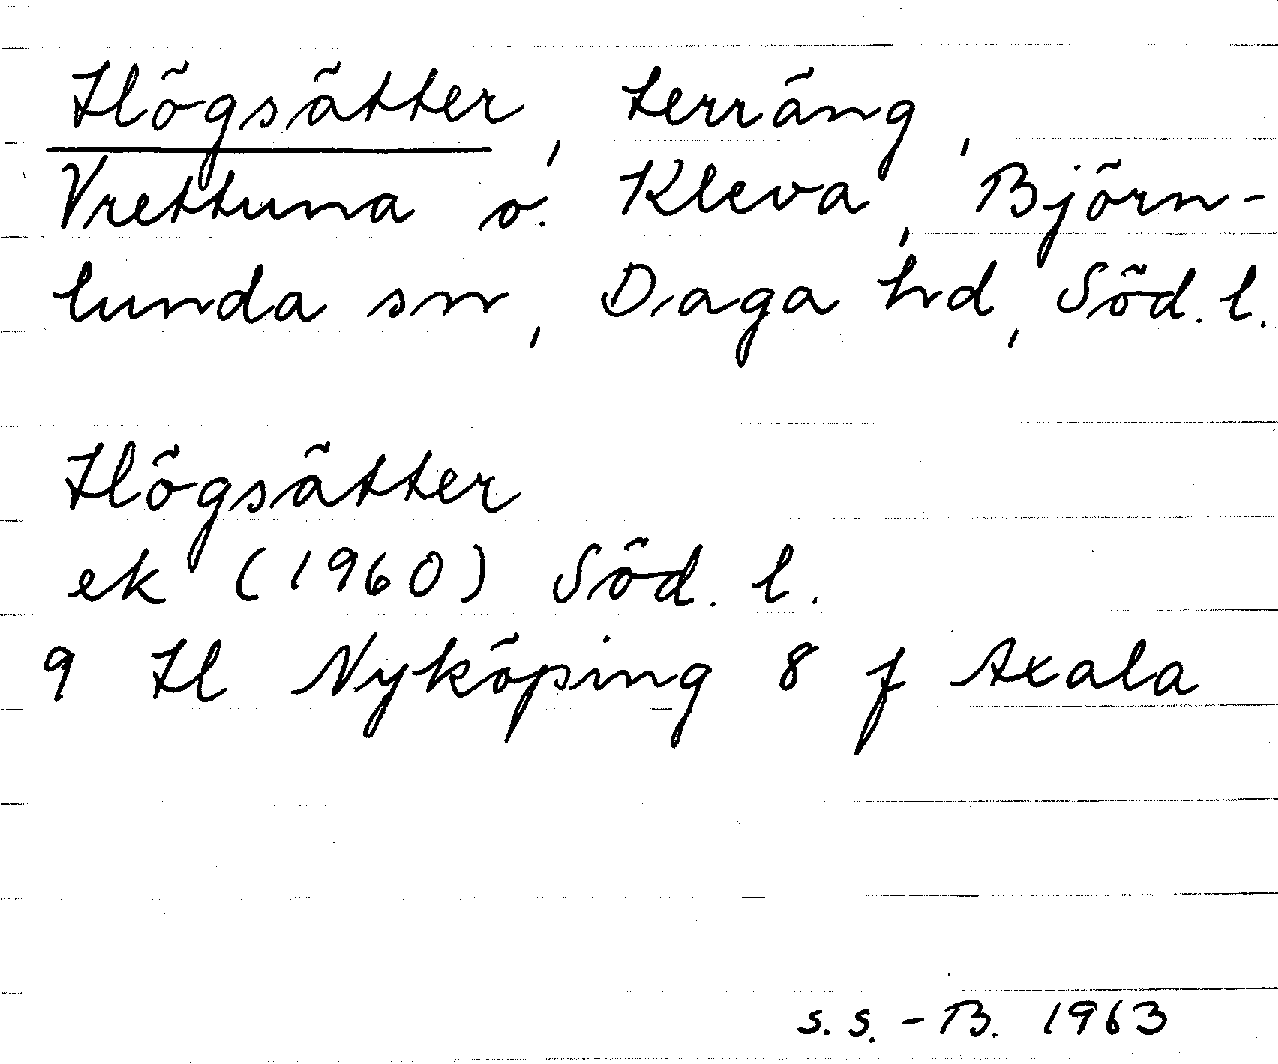 Högsätter, terräng,
Vrettuna o. Kleva, Björn-
lunda sn, Daga hd, Söd. l.
Högsätter
ek (1960) Söd. l.
9 H Nyköping 8 f Axala
S.S.-B. 1963